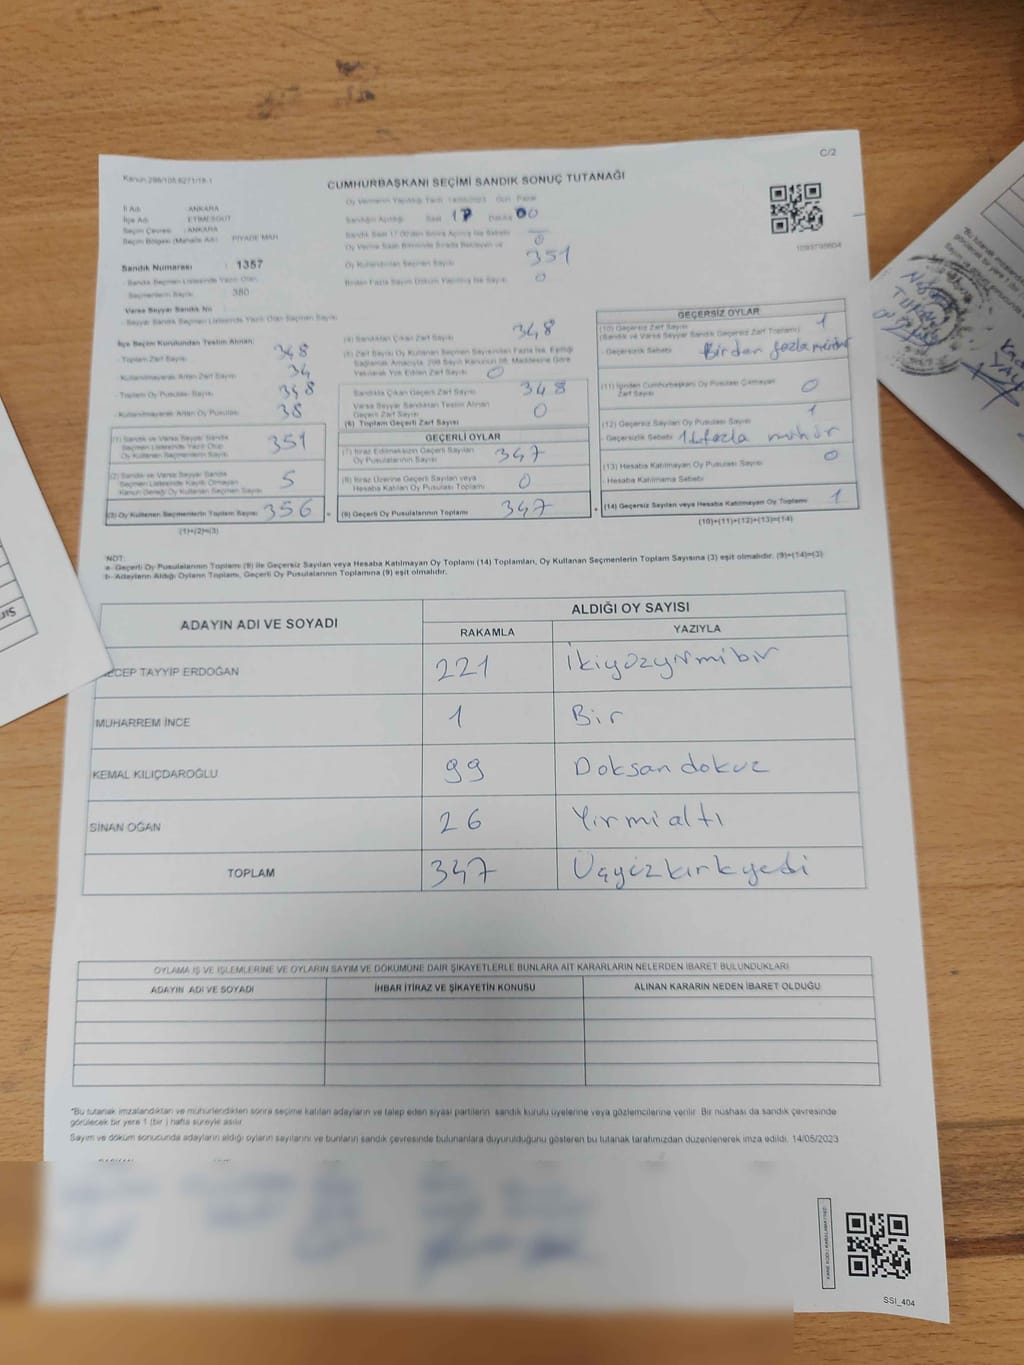 C/2
Kanun 298/105,6271/18-1
CUMHURBAŞKANI SEÇİMİ SANDIK SONUÇ TUTANAĞI
İl Adı : ANKARA
İlçe Adı : ETİMESGUT
Seçim Çevresi : ANKARA
Seçim Bölgesi (Mahalle Adı) : PİYADE MAH
Sandık Numarası : 1357
- Sandık Seçmen Listesinde Yazılı Olan
Seçmenlerin Sayısı : 380
Varsa Seyyar Sandık No :
- Seyyar Sandık Seçmen Listesinde Yazılı Olan Seçmen Sayısı:
Oy Vermenin Yapıldığı Tarih 14/05/2023 Gün Pazar
Sandığın Açıldığı Saat 17 Dakika 00
0
Oy Kullandırılan Seçmen Sayısı 351
Birden Fazla Sayım Döküm Yapılmış İse Sayısı: 0
1093795604
İlçe Seçim Kurulundan Teslim Alınan:
- Toplam Zarf Sayısı 348
- Kullanılmayarak Artan Zarf Sayısı 34
- Toplam Oy Pusulası Sayısı 348
- Kullanılmayarak Artan Oy Pusulası 38
(1) Sandık ve Varsa Seyyar Sandık
Seçmen Listesinde Yazılı Olup
Oy Kullanan Seçmenlerin Sayısı 351
(2) Sandık ve Varsa Seyyar Sandık
Seçmen Listesinde Kayıtlı Olmayan
Kanun Gereği Oy Kullanan Seçmen Sayısı 5
(3) Oy Kullanan Seçmenlerin Toplam Sayısı 356
(1)+(2)=(3)
(4) Sandıktan Çıkan Zarf Sayısı 348
(5) Zarf Sayısı Oy Kullanan Seçmen Sayısından Fazla İse, Eşitliği
Sağlamak Amacıyla, 298 Sayılı Kanunun 98. Maddesine Göre
Yakılarak Yok Edilen Zarf Sayısı 0
Sandıkta Çıkan Geçerli Zarf Sayısı 348
Varsa Seyyar Sandıktan Teslim Alınan
Geçerli Zarf Sayısı 0
(6) Toplam Geçerli Zarf Sayısı
GEÇERLİ OYLAR
(7) İtiraz Edilmeksizin Geçerli Sayılan
Oy Pusulalarının Sayısı 347
(8) İtiraz Üzerine Geçerli Sayılan veya
Hesaba Katılan Oy Pusulası Toplamı 0
(9) Geçerli Oy Pusulalarının Toplamı 347
GEÇERSİZ OYLAR
(10) Geçersiz Zarf Sayısı 1
(Sandık ve Varsa Seyyar Sandık Geçersiz Zarf Toplamı)
- Geçersizlik Sebebi Birden fazla mühür
(11) İçinden Cumhurbaşkanı Oy Pusulası Çıkmayan
Zarf Sayısı 0
(12) Geçersiz Sayılan Oy Pusulası Sayısı 1
- Geçersizlik Sebebi fazla mühür
(13) Hesaba Katılmayan Oy Pusulası Sayısı 0
- Hesaba Katılmama Sebebi
(14) Geçersiz Sayılan veya Hesaba Katılmayan Oy Toplamı 1
(10)+(11)+(12)+(13)=(14)
NOT:
a- Geçerli Oy Pusulalarının Toplamı (9) ile Geçersiz Sayılan veya Hesaba Katılmayan Oy Toplamı (14) Toplamları, Oy Kullanan Seçmenlerin Toplam Sayısına (3) eşit olmalıdır. (9)+(14)=(3)
b- Adayların Aldığı Oyların Toplamı, Geçerli Oy Pusulalarının Toplamına (9) eşit olmalıdır.
ADAYIN ADI VE SOYADI
ALDIĞI OY SAYISI
RAKAMLA YAZIYLA
ECEP TAYYİP ERDOĞAN 221 İkiyüzyirmibir
MUHARREM İNCE 1 Bir
KEMAL KILIÇDAROĞLU 99 Doksan dokuz
SİNAN OĞAN 26 Yirmialtı
TOPLAM 347 Üçyüzkırkyedi
OYLAMA İŞ VE İŞLEMLERİNE VE OYLARIN SAYIM VE DÖKÜMÜNE DAİR ŞİKAYETLERLE BUNLARA AİT KARARLARIN NELERDEN İBARET BULUNDUKLARI
ADAYIN ADI VE SOYADI İHBAR İTİRAZ VE ŞİKAYETİN KONUSU ALINAN KARARIN NEDEN İBARET OLDUĞU
*Bu tutanak imzalandıktan ve mühürlendikten sonra seçime katılan adayların ve talep eden siyasi partilerin sandık kurulu üyelerine veya gözlemcilerine verilir. Bir nüshası da sandık çevresinde
görülecek bir yere 1 (bir ) hafta süreyle asılır.
Sayım ve döküm sonucunda adayların aldığı oyların sayılarını ve bunların sandık çevresinde bulunanlara duyurulduğunu gösteren bu tutanak tarafımızdan düzenlenerek imza edildi. 14/05/2023
SSİ_404